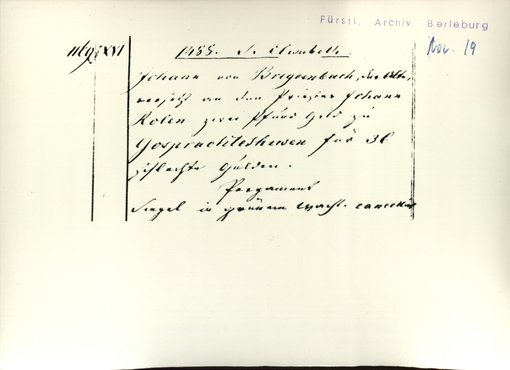 Fürstl. Archiv Berleburg
Nov. 19
1455. S. Elisabeth.
Johann von Breydenbach, der Alte,
versetzt an den Priester Johann
Kolen zwei Pfund Geld zu
für 36
schlechte Gulden.
Pergament
Siegel in grünem Wachs.